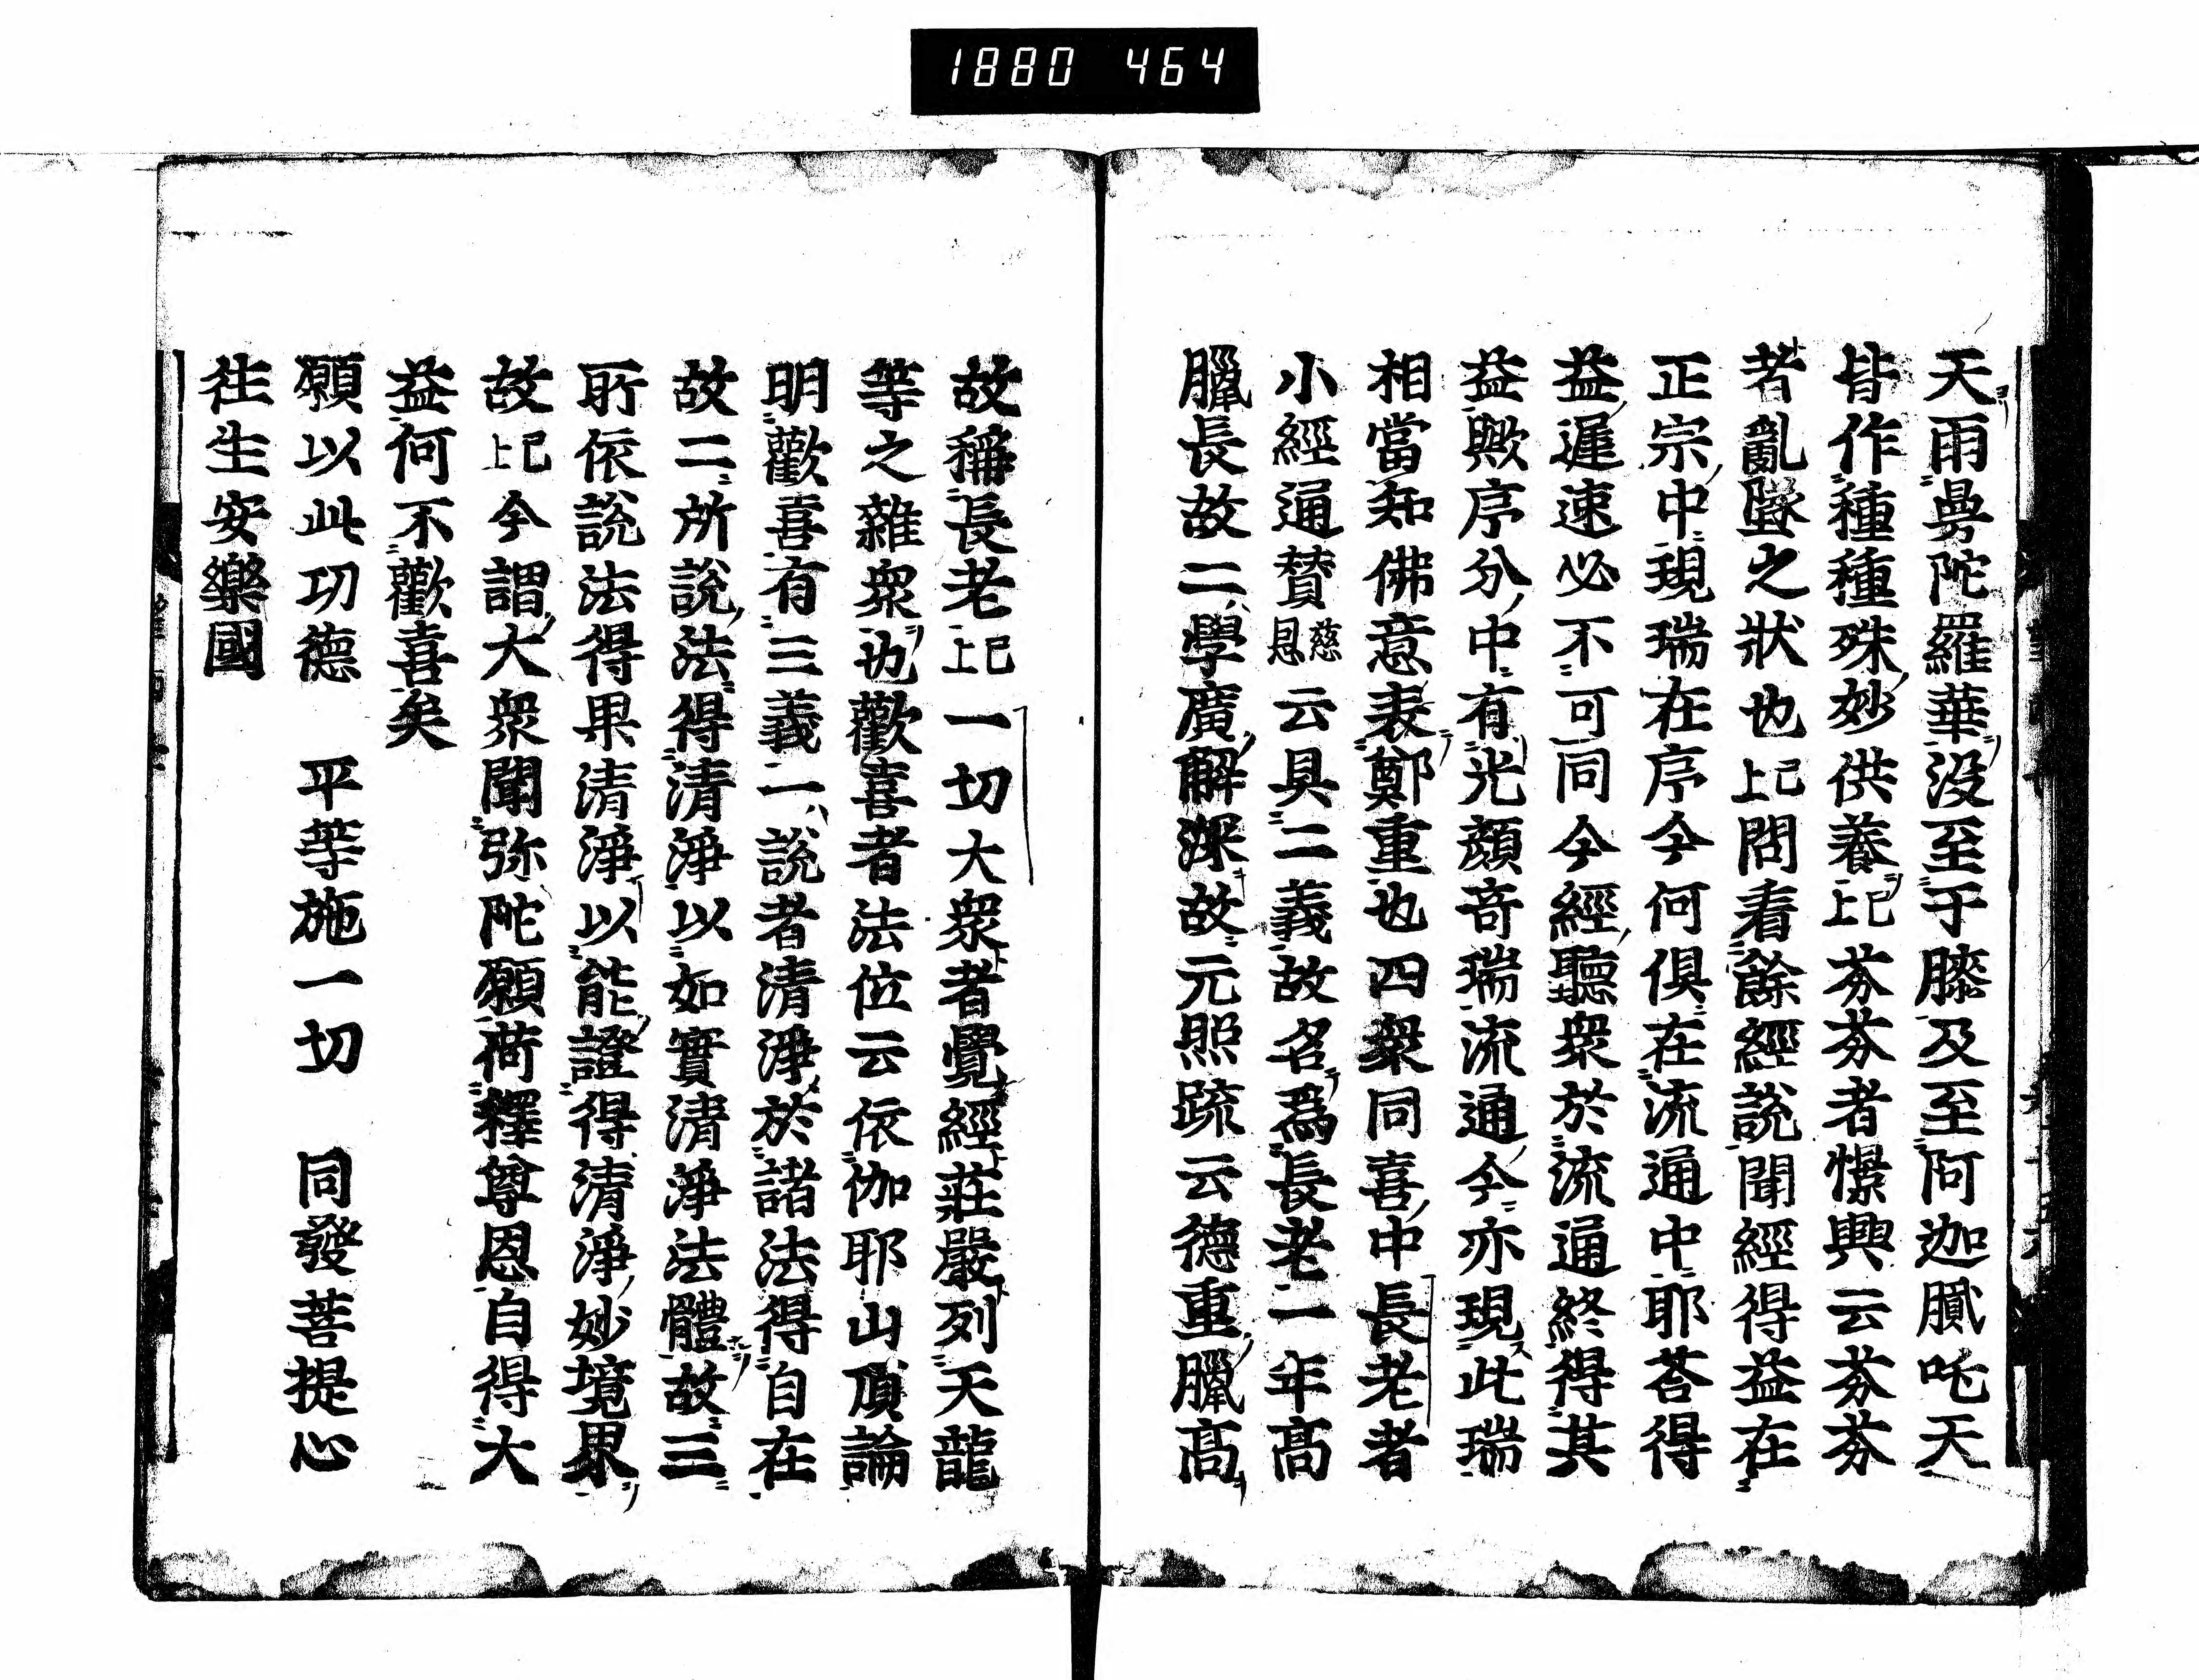 1880 464
天雨曼陀羅華没至于膝及至阿迦膩吒天
皆作種種殊妙供養已上芬芬者憬興云芬芬
者亂墜之狀也已上問看餘經說聞經得益在
正宗中現瑞在序今何俱在流通中耶荅得
益遲速必不可同今經聽衆於流通終得其
益歟序分中有光顔竒瑞流通今亦現此瑞
相當知佛意表鄭重也四衆同喜中長老者
小經通賛慈恩云具二義故名爲長老一年高
臘長故二學廣解深故元照䟽云德重臘髙
故稱長老已上一切大衆者覺經莊嚴列天龍
等之雜衆也歡喜者法位云依伽耶山頂論
明歡喜有三義一說者清淨於諸法得自在
故二所說法得清淨以如實清淨法體故三
所依說法得果清淨以能證得清淨妙境界
故已上今謂大衆聞弥陀願荷釋尊恩自得大
益何不歡喜矣
願以此功德　平等施一切　同發菩提心
往生安樂國